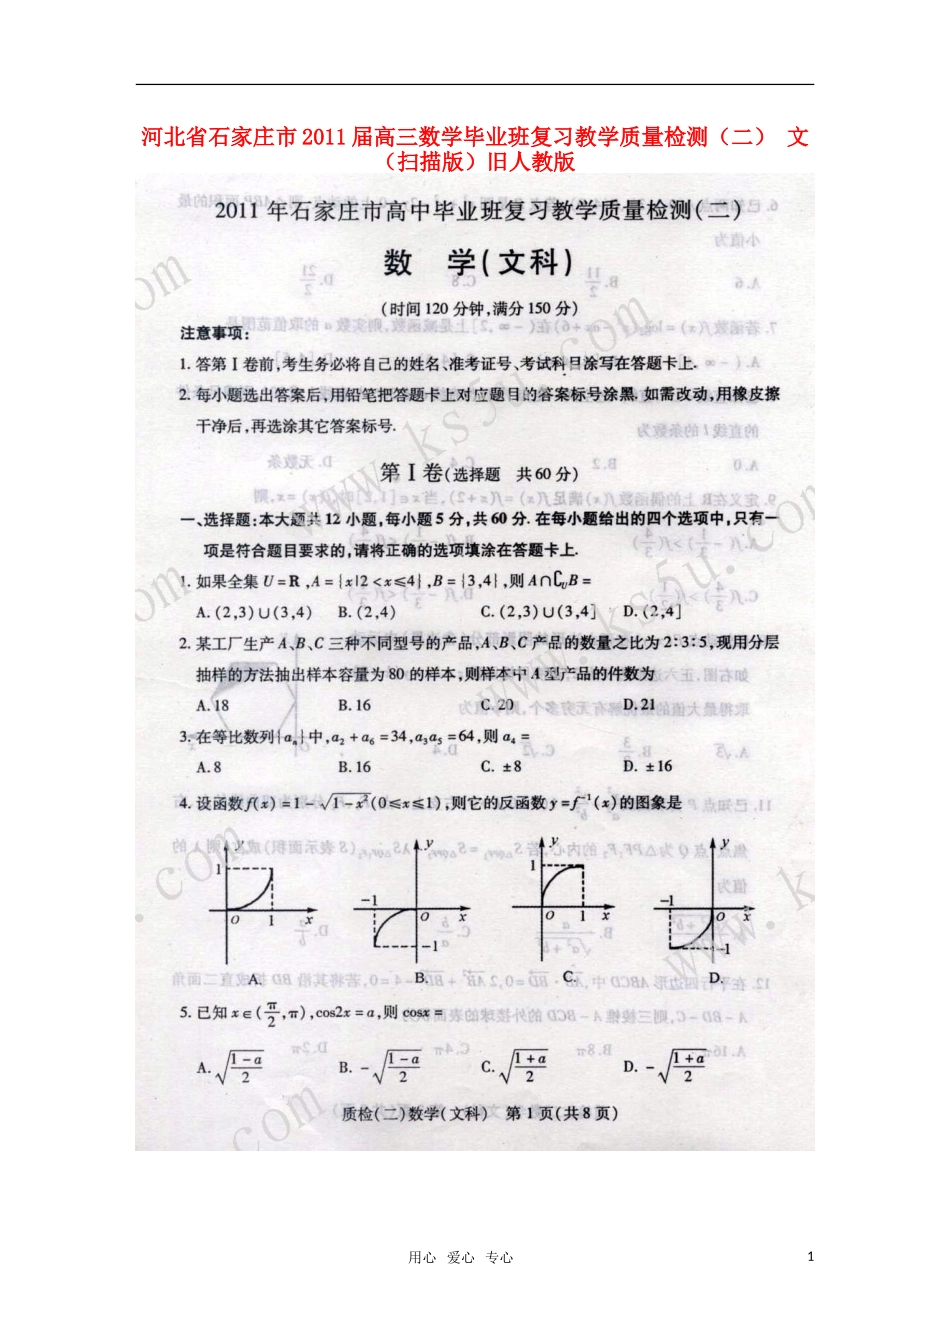 河北省石家庄市 2011 届高三数学毕业班复习教学质量检测（二） 文
（扫描版）旧人教版
2011 年石家庄市高中毕业班复习教学质量检测(二)
数 学(文科)
(时间 120 分钟,满分 150 分)
注意事项:
1. 答第 Ⅰ 卷前,考生务必将自己的姓名、准考证号、考试科目涂写在答题卡上.
2. 每小题选出答案后,用铅笔把答题卡上对应题目的答案标号涂黑.如需改动,用橡皮擦
干净后,再选涂其它答案标号.
第 Ⅰ 卷(选择题 共 60 分)
一、选择题:本大题共 12 小题,每小题 5 分,共 60 分. 在每小题给出的四个选项中,只有一
项是符合题目要求的,请将正确的选项填涂在答题卡上.
1. 如果全集 U=R ,A={x|2<x≤4} ,B={3,4} ,则 A∩∁UB=
A. (2,3)∪(3,4) B. (2,4) C. (2,3)∪(3,4] D. (2,4]
2. 某工厂生产 A、B、C 三种不同型号的产品,A、B、C 产品的数量之比为 2:3:5,现用分层
抽样的方法抽出样本容量为 80 的样本,则样本中 A 型产品的件数为
A. 18 B. 16 C. 20 D. 21
3. 在等比数列{aₙ}中,a₂+a₆=34,a₃a₅=64,则 a₄=
A. 8 B. 16 C. ±8 D. ±16
4. 设函数 f(x)=1-√(1-x²)(0≤x≤1),则它的反函数 y=f⁻¹(x)的图象是
y 1 O 1 x
y -1 O x -1
y 1 O 1 x
y -1 O x -1
A. B. C. D.
5. 已知 x∈(π/2,π),cos2x=a,则 cosx=
A. √((1-a)/2) B. -√((1-a)/2) C. √((1+a)/2) D. -√((1+a)/2)
质检(二)数学(文科) 第 1 页(共 8 页)
用心 爱心 专心 1